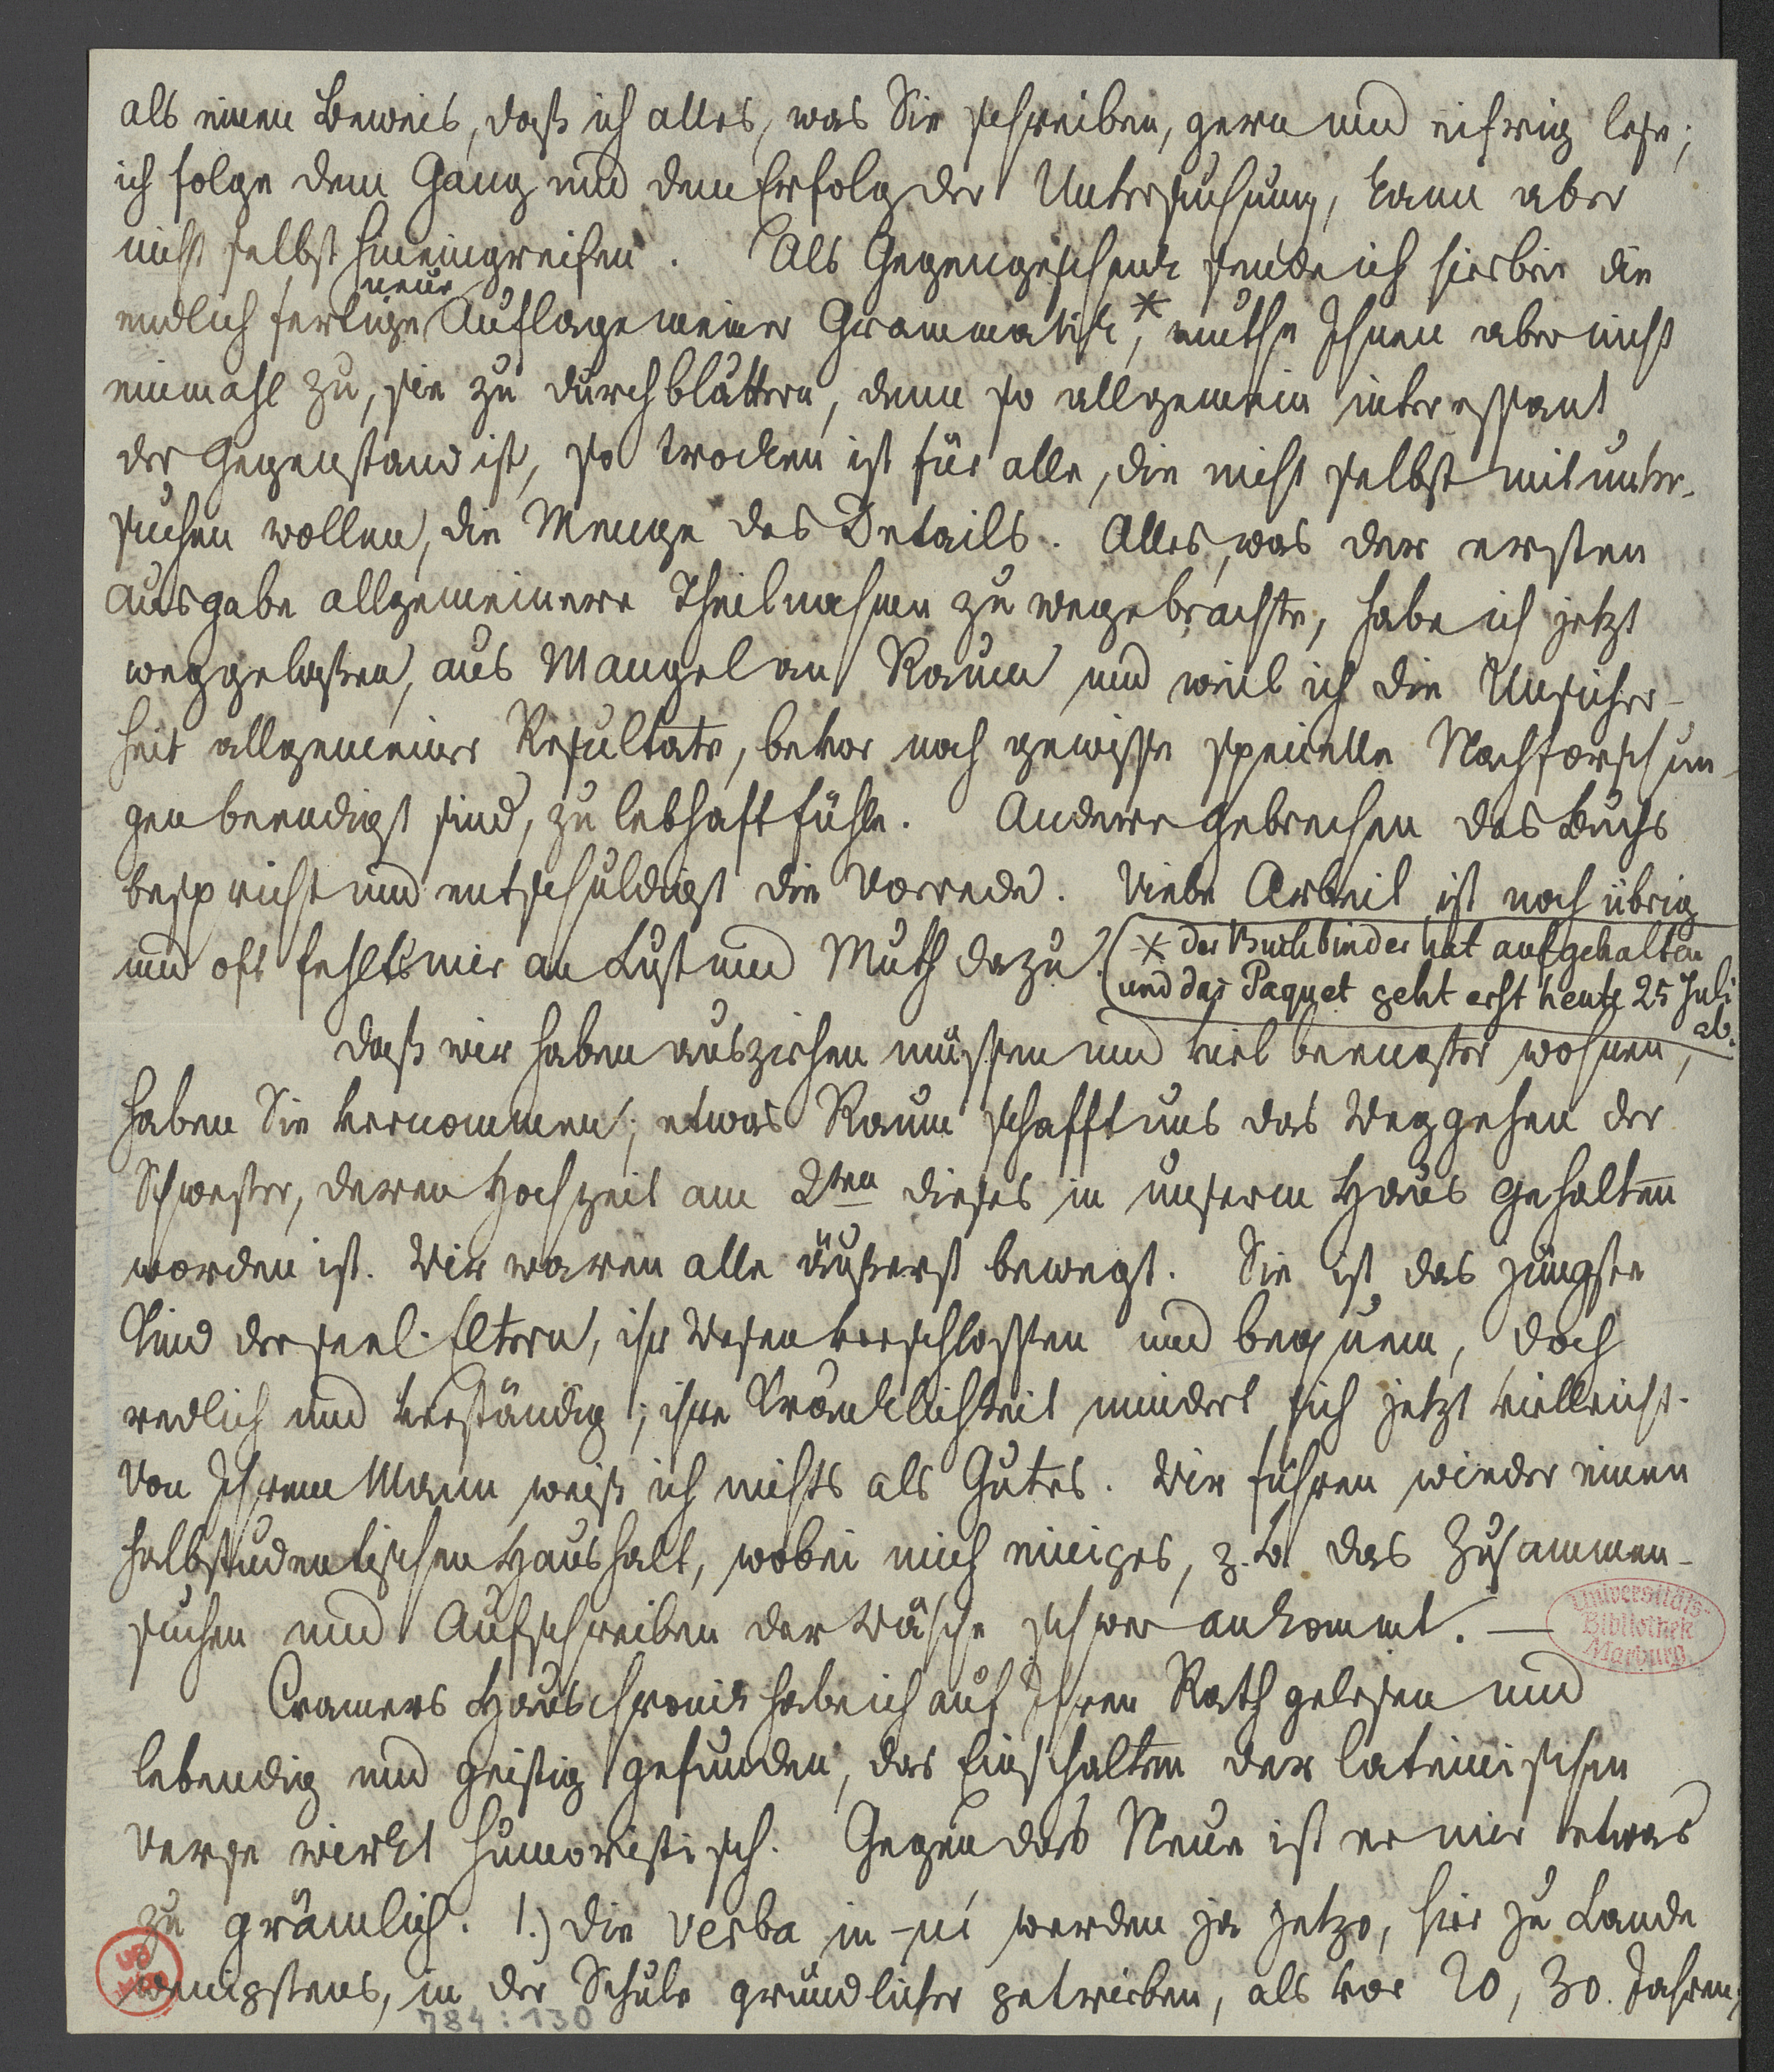 als einen Beweis, daß ich alles, was Sie schreiben, gern und eifrig lese;
ich folge dem Gang und dem Erfolg der Untersuchung, kann aber
nicht selbst hineingreifen. Als Gegengeschenk sende ich hierbei die
neue
endlich fertige Auflage meiner Grammatik*, muthe Ihnen aber nicht
einmahl zu, sie zu durchblättern, denn so allgemein interessant
der Gegenstand ist, so trocken ist für alle, die nicht selbst mit unter-
suchen wollen, die Menge des Details. Alles, was der ersten
Ausgabe allgemeinere Theilnahme zu wegebrachte, habe ich jetzt
weggelaßen, aus Mangel an Raum und weil ich die Unsicher-
heit allgemeiner Resultate, bevor noch gewisse specielle Nachforschun-
gen beendigt sind, zu lebhaft fühle. Andere Gebrechen des Buchs
bespricht und entschuldigt die Vorrede. Viele Arbeit ist noch übrig
und oft fehlts mir an Lust und Muth dazu.
* der Buchbinder hat aufgehalten
und das Paquet geht erst heute 25 Juli
ab.
Daß wir haben ausziehen müssen und viel beengter wohnen,
haben Sie vernommen; etwas Raum schafft uns das Weggehen der
Schwester, deren Hochzeit am 2ten dieses in unserm Haus gehalten
worden ist. Wir waren alle äußerst bewegt. Sie ist das jüngste
Kind der seel. Eltern, ihr Wesen verschlossen und bequem, doch
redlich und verständig; ihre Kränklichkeit mindert sich jetzt vielleicht.
Von Ihrem Mann weiß ich nichts als Gutes. Wir führen wieder einen
halbstudentischen Haushalt, wobei mich einiges, z. B. das Zusammen-
suchen und Aufschreiben der Wäsche schwer ankommt. —
Cramers Hauschronik habe ich auf Ihren Rath gelesen und
lebendig und geistig gefunden, das Einschalten der lateinischen
Verse wirkt humoristisch. Gegen das Neue ist er mir etwas
zu grämlich. 1.) die verba in -μι werden ja jetzo, hier zu Lande
wenigstens, in der Schule gründlicher getrieben, als vor 20, 30. Jahren;
Universitäts-
Bibliothek
Marburg
784:130